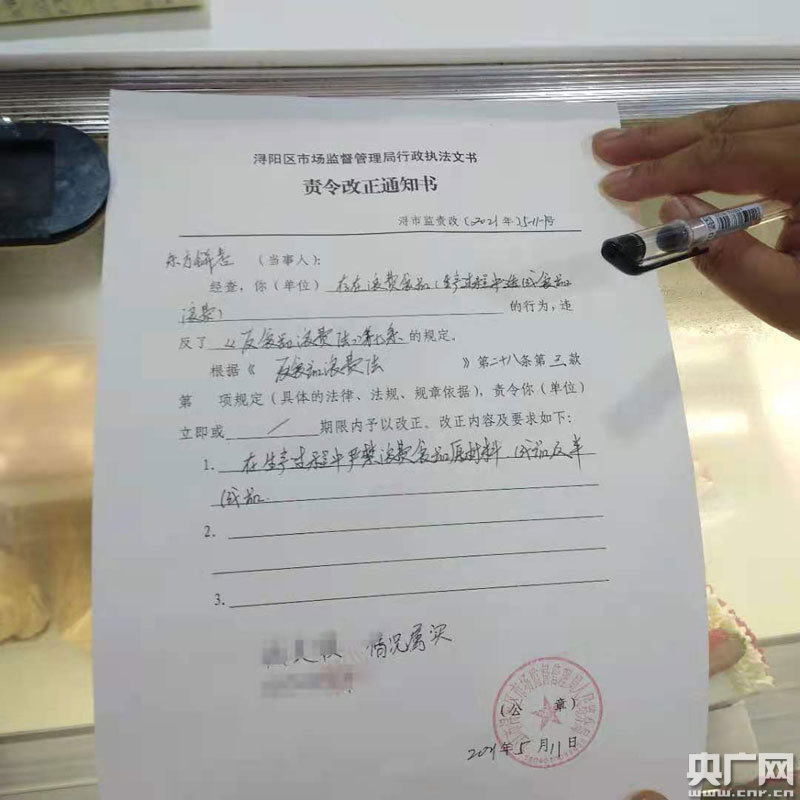 浔阳区市场监督管理局行政执法文书
责令改正通知书
浔市监责改〔2021年〕5-11-1号
(当事人):
经查,你(单位) 存在浪费食品(生产过程中造成食品
浪费) 的行为,违
反了 《反食品浪费法》第 条 的规定。
根据《 反食品浪费法 》第二十八条第三款
第 项规定(具体的法律、法规、规章依据),责令你(单位)
立即或 / 期限内予以改正、改正内容及要求如下:
1. 在生产过程中严禁浪费食品原材料、成品及半
成品.
2.
3.
情况属实
(公 章)
2021年5月11日
央广网
www.cnr.cn